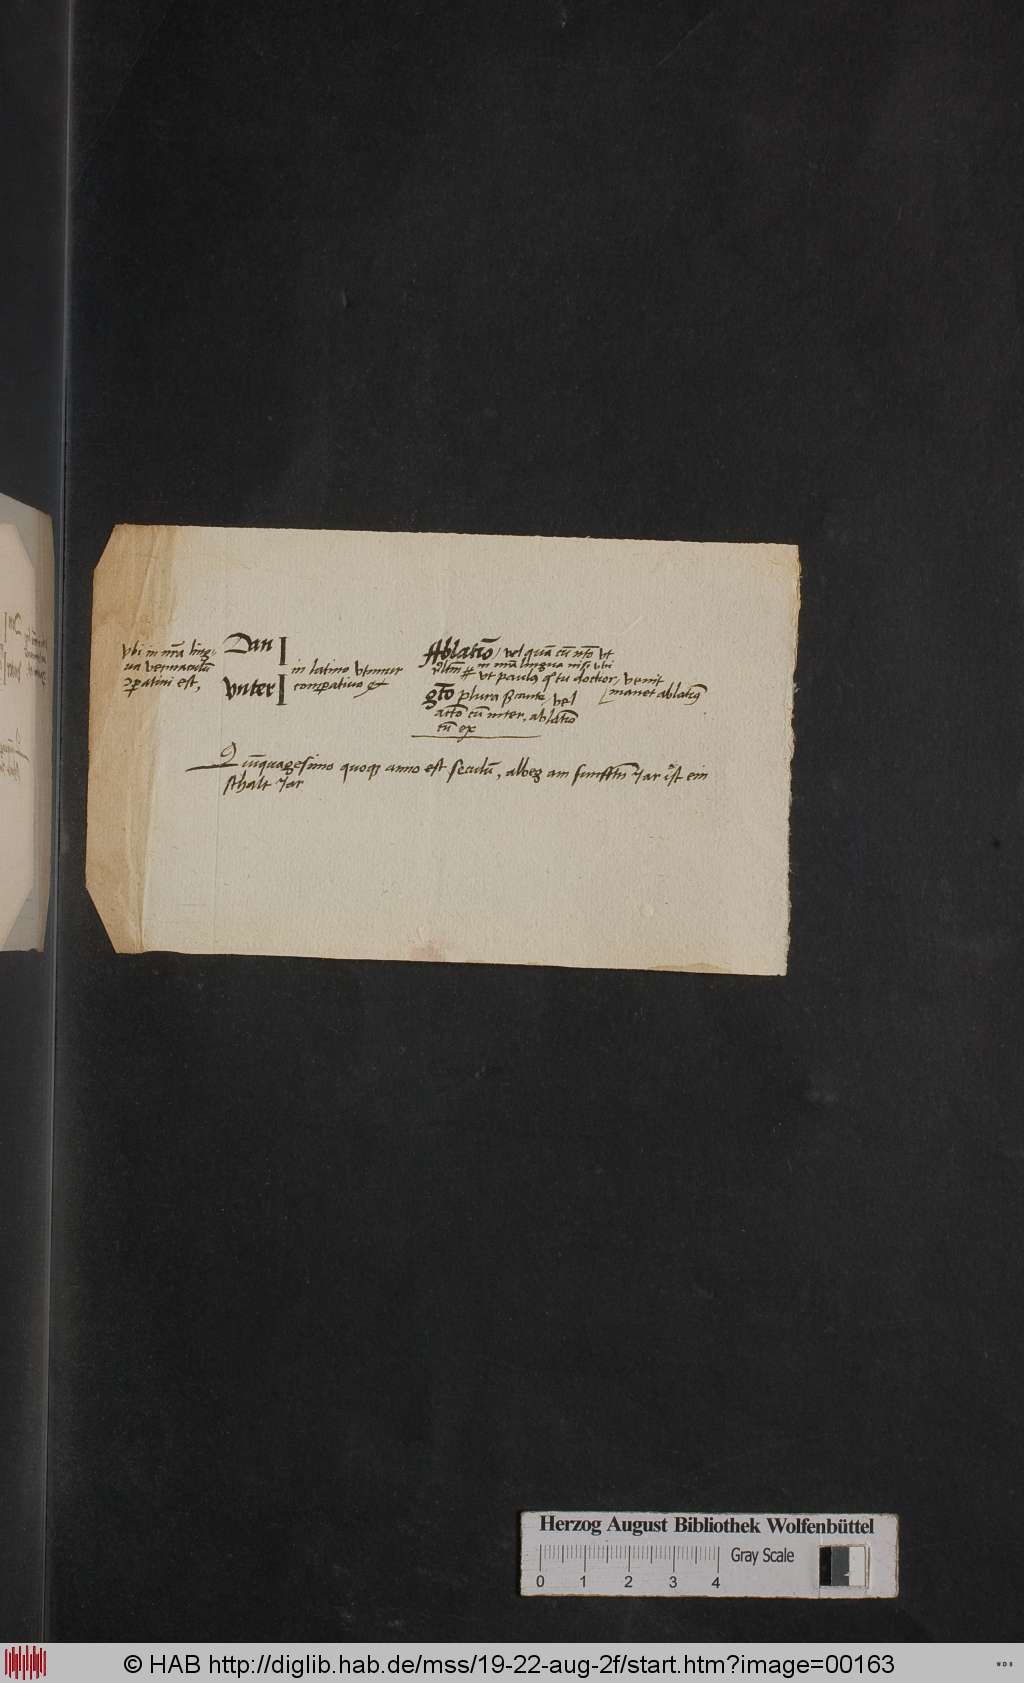 vbi in nr̄a ling-
ua vernacula
ꝯꝑatini est,
Dan
vnter
in latino vtimur
comparatiuo
Ablatiō, vel quā cū nt̄o vt
in nr̄a lingua nisi vbi
vt paulꝰ tu doctior, venit
manet ablatiꝰ
gt̄o plura vel
act̄o cū inter. ablatiō
cū ex
Quīquagesimo quoqꝫ anno est seculū, albeg am funfftn̄ Jar ist ein
schalt Jar
Herzog August Bibliothek Wolfenbüttel
Gray Scale
0 1 2 3 4
© HAB http://diglib.hab.de/mss/19-22-aug-2f/start.htm?image=00163